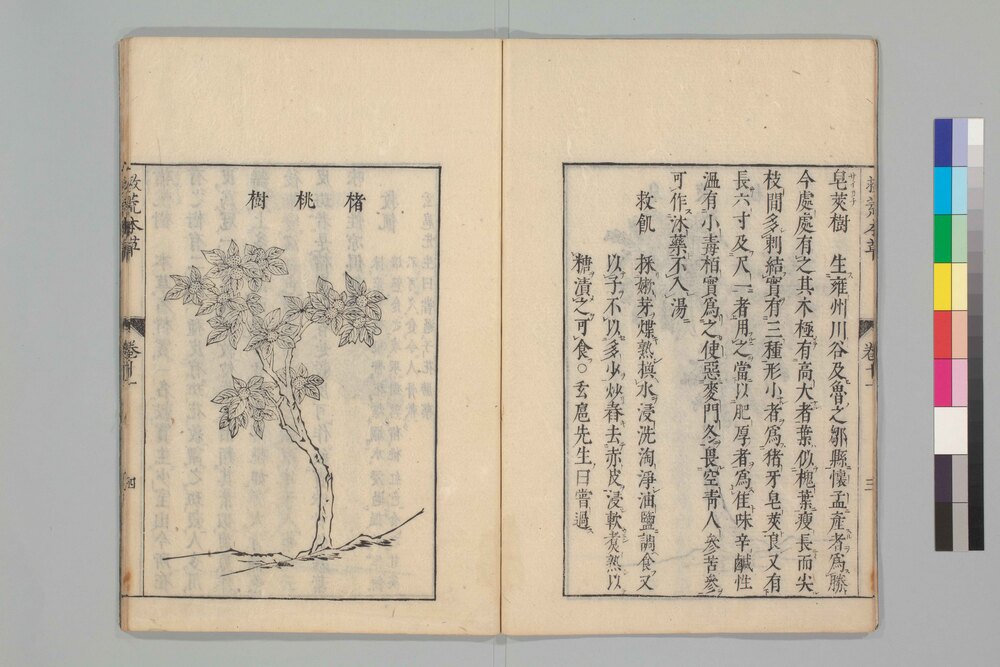 皂莢樹　生雍州川谷及魯之鄒縣懷孟產者爲勝
サイカチ
今處處有之其木極有高大者葉似槐葉瘦長而尖
枝間多刺結實有三種形小者爲猪牙皂莢良又有
長六寸及尺二者用之當以肥厚者爲佳味辛鹹性
溫有小毒栢實爲之使惡麥門冬畏空青人參苦參
可作沐藥不入湯
救飢　採嫩芽煠熟換水浸洗淘淨油鹽調食又
以子不以多少炒舂去赤皮浸軟煮熟以
糖漬之可食○玄扈先生曰嘗過
救荒本草
卷十一
三
楮桃樹
救荒本草
四